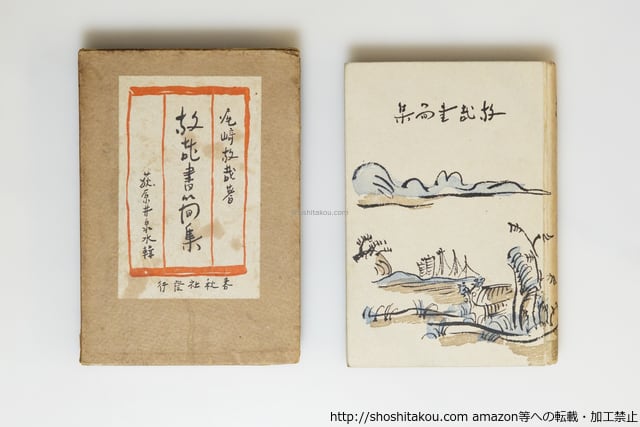 尾崎放哉著
放哉書簡集
荻原井泉水編
行發社秋春
集簡書哉放
shoshitakou.com
http://shoshitakou.com amazon等への転載・加工禁止